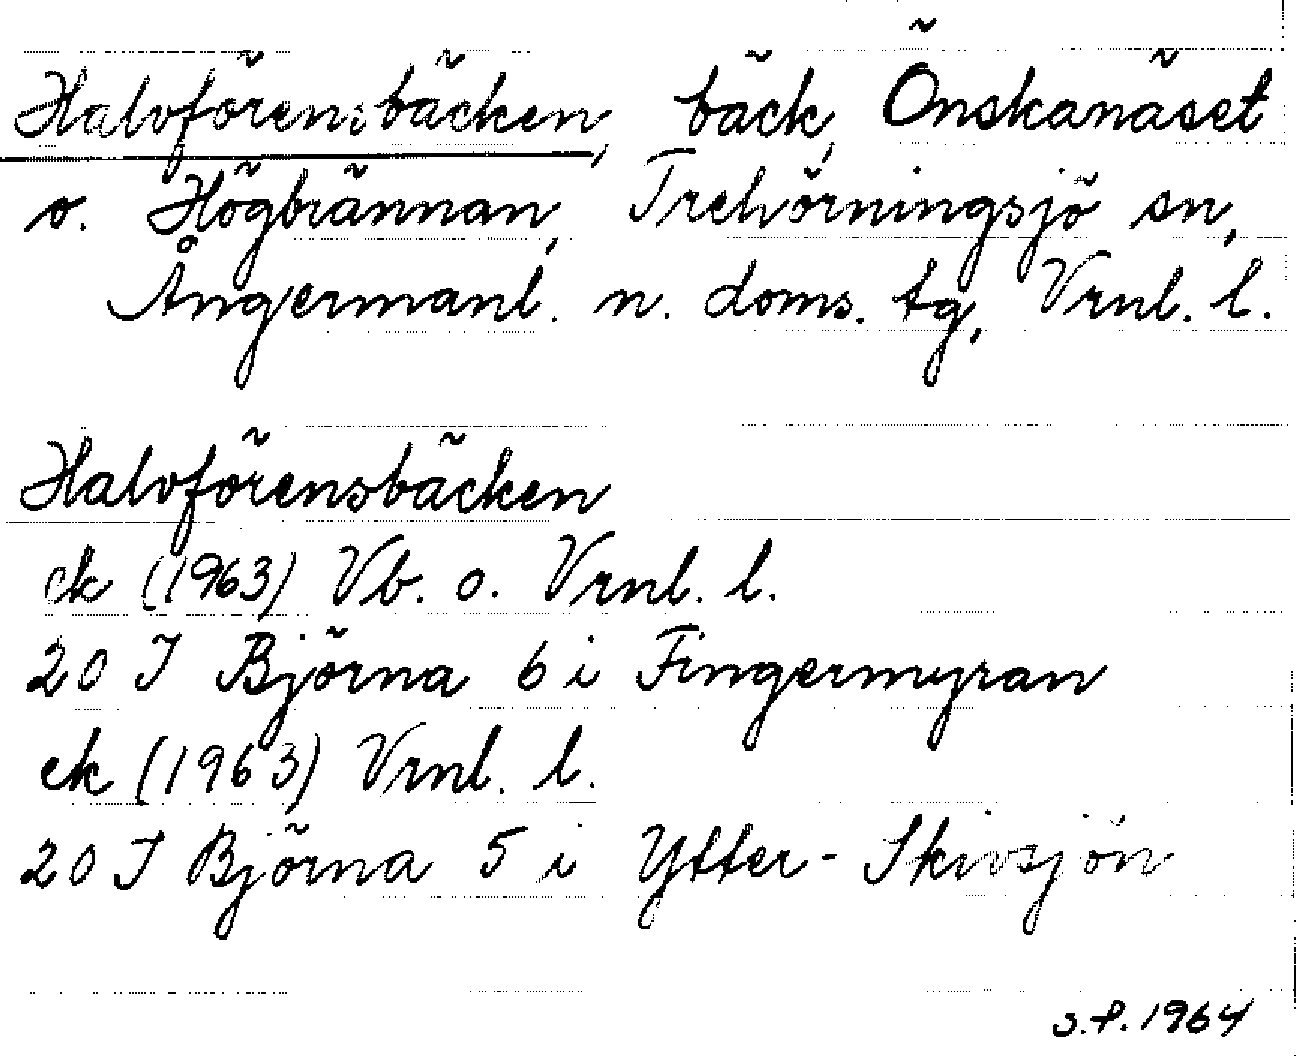 Halvförensbäcken, bäck, Önskanäset
o. Högbrännan, Trehörningsjö sn,
Ångermanl. n. doms. tg, Vrnl. l.
Halvförensbäcken
ek (1963) Vb. o. Vrnl. l.
20 J Björna 6 i Fingermyran
ek (1963) Vrnl. l.
20 J Björna 5 i Ytter-Skivsjön
S.P. 1964